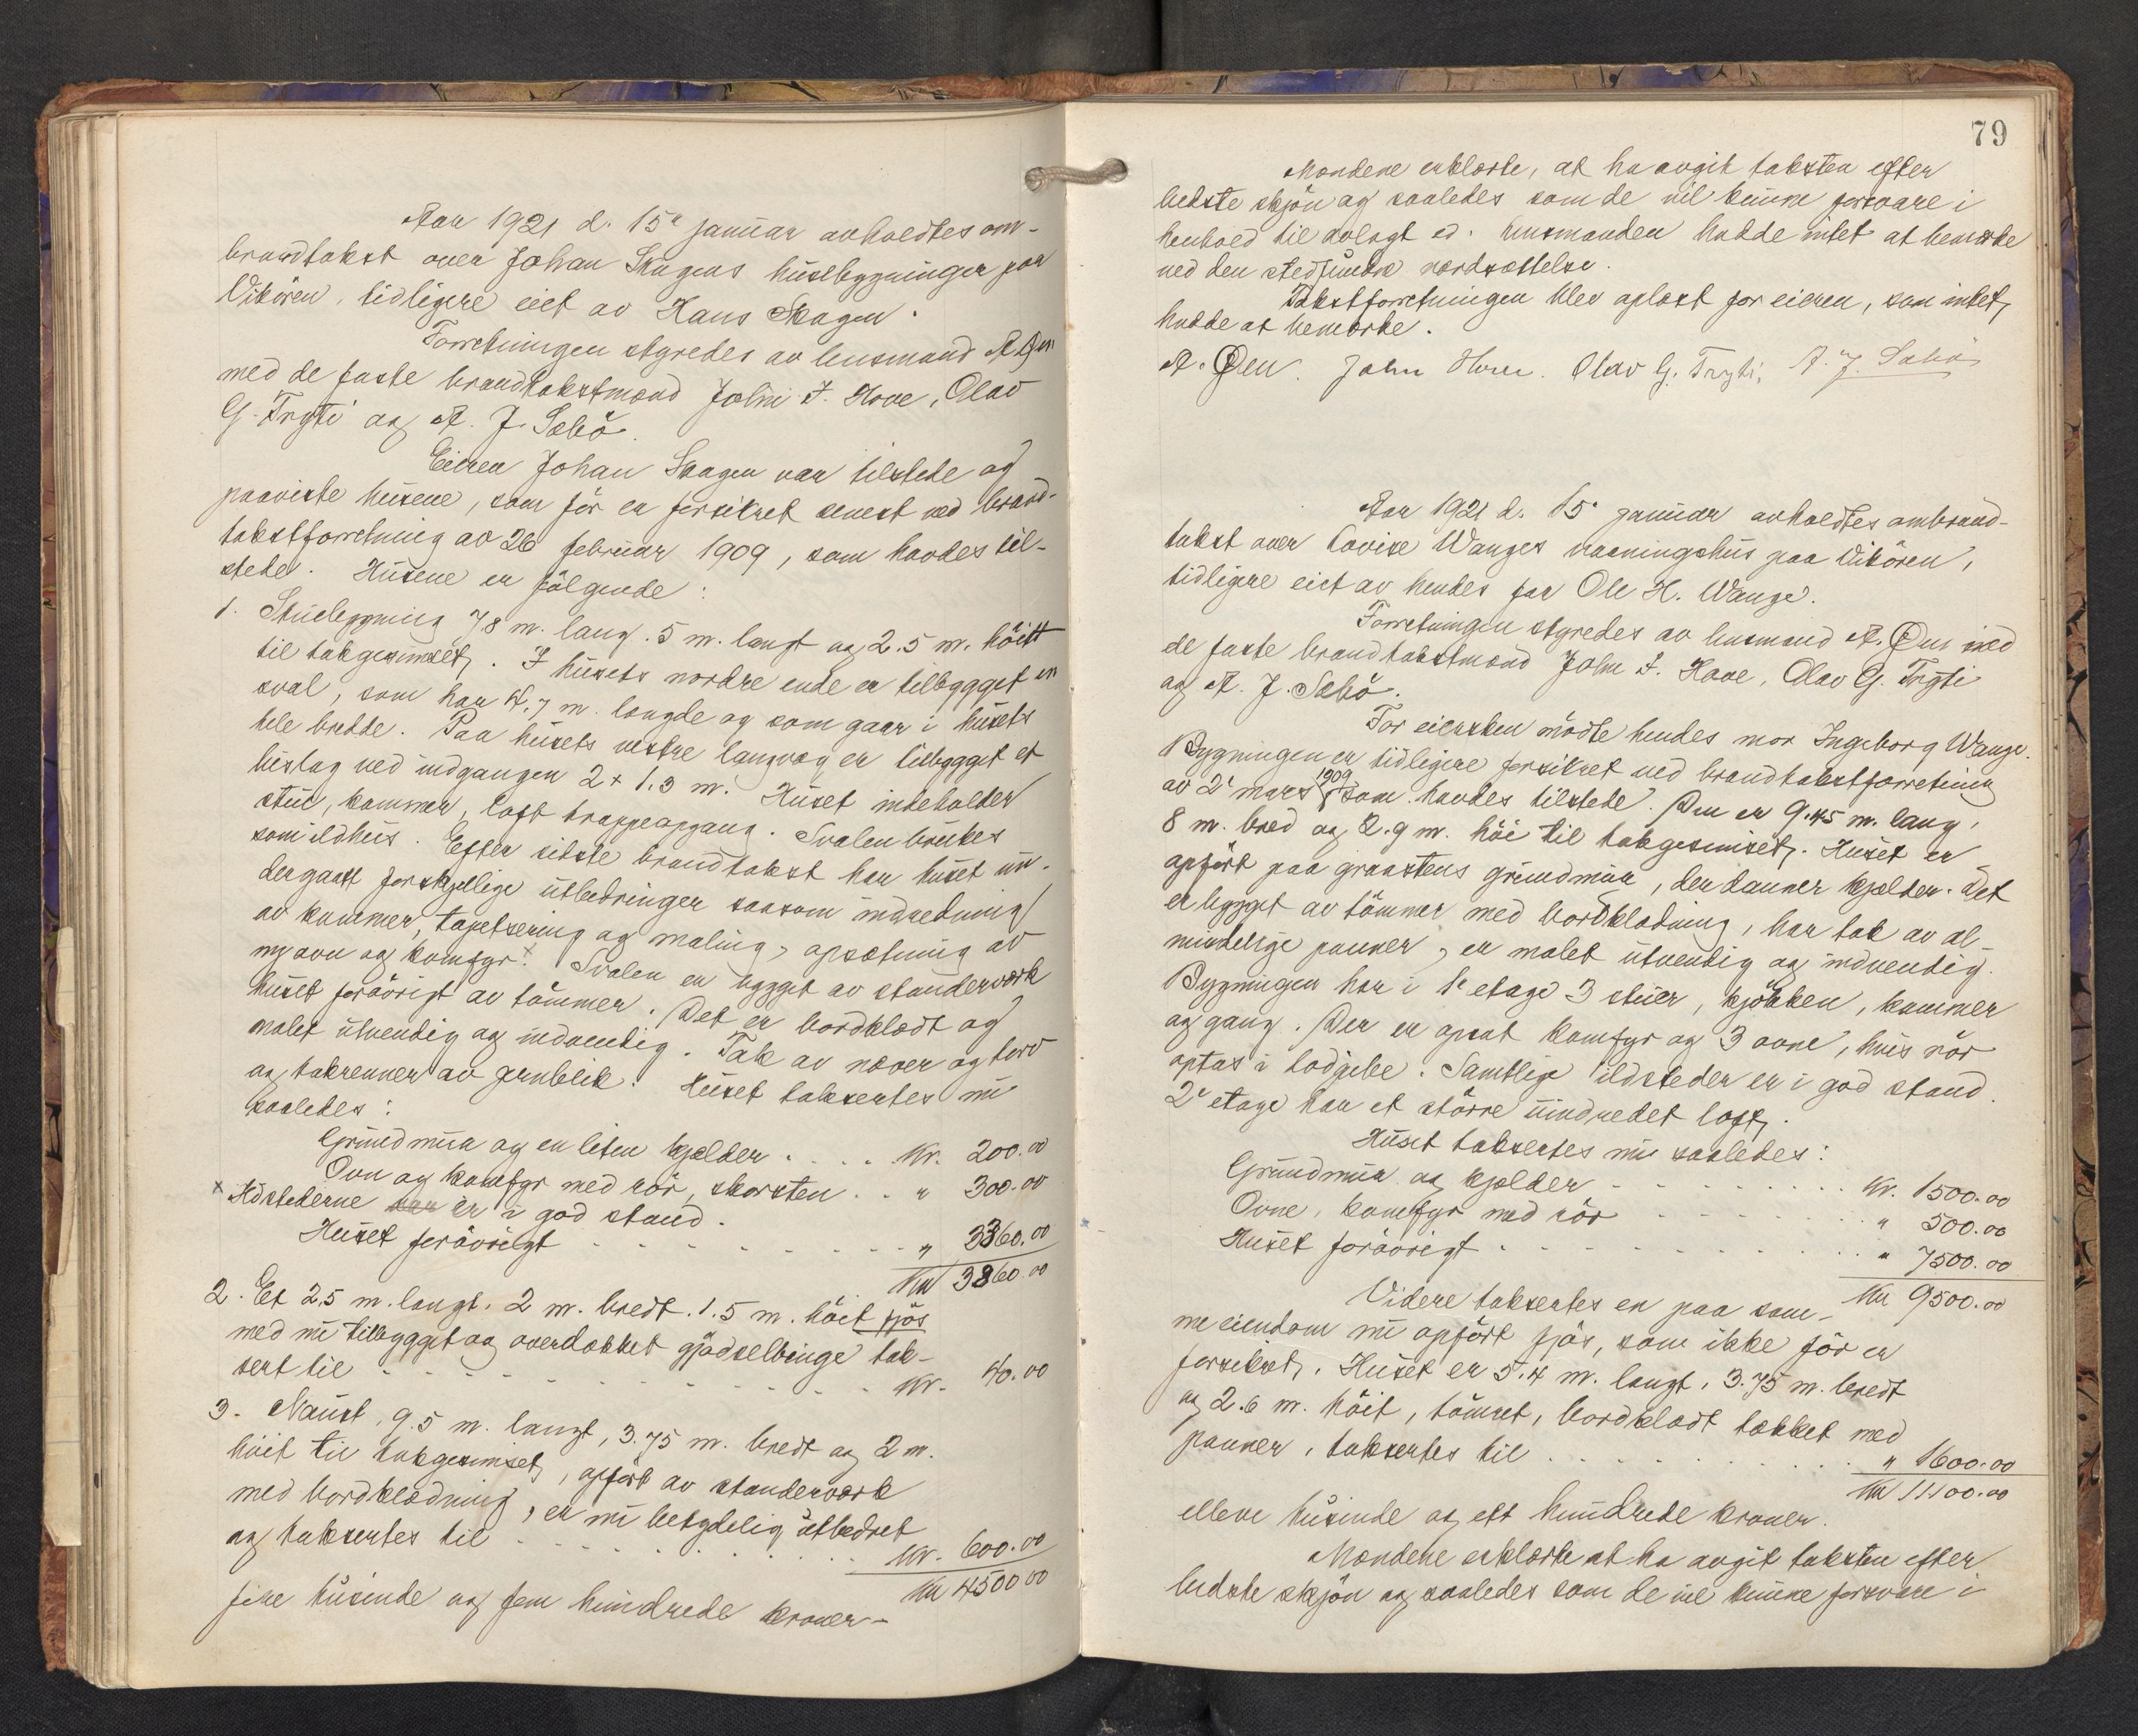 Aar 1921 d. 15de januar avholdtes om-
brandtakst over Johan Skagens husebygninger paa
Vikören, tidligere eiet av Hans Skagen.
Forretningen styredes av lensmand A. Øen
med de faste brandtakstmænd John J. Hove, Olav
G. Trygti og A. J. Sæbö.
Eieren Johan Skagen var tilstede og
paaviste husene, som för er forsikret senest ved brand-
takstforretning av 26 februar 1909, som havdes til-
stede. Husene er fölgende:
1. Stuebygning 7,8 m. lang. 5 m. langt og 2.5 m. höitt
til takgesimset. I husets nordre ende er tilbygget en
sval, som har 4.7 m. længde og som gaar i husets
hele bredde. Paa husets vestre langvæg er tilbygget et
bislag ved indgangen 2 x 1.3 m. Huset indeholder
stue, kammer, loft trappeopgang. Svalen brukes
som ildhus. Efter sidste brandtakst har huset un-
dergaatt forskjellige utbedringer saasom indredning
av kammer, tapetsering og maling, opsætning av
ny ovn og komfyr. x Svalen er bygget av stenderverk
huset forövrigt av tömmer. Det er bordklædt og
malet utvendig og indvendig. Tak av næver og torv
og takrenner av jernblik. Huset taksertes nu
saaledes:
Grundmur og en liten kjelder . . . . Kr. 200.00
Ovn og komfyr med rör, skorsten . . " 300.00
x Ildstederne har er i god stand.
Huset forövrigt - - - - - - - - - " 3360.00
Kr 3860.00
2. Et 2.5 m. langt. 2 m. bredt. 1.5 m. höit fjös
med nu tilbygget og overdækket gjödselbinge tak-
sert til - - - - - - - - - - - - Kr. 40.00
3. Naust, 9.5 m. langt, 3.75 m. bredt og 2 m.
höit til takgesimset, opfört av stenderverk
med bordklædning, er nu betydelig utbedret
og taksertes til - - - - - - - - Kr. 600.00
Kr 4500.00
fire tusinde og fem hundrede kroner -
79
Mændene erklærte, at ha avgit taksten efter
bedste skjön og saaledes som de vil kunne forsvare i
henhold til avlagt ed. Lensmanden hadde intet at bemerke
ved den stedfundne værdsættelse.
Takstforretningen blev oplæst for eieren, som intet
hadde at bemerke.
A. Øen. John Hove. Olav G. Trygti, A. J. Sæbö
Aar 1921 d. 15. januar avholdtes ombrand-
takst over Lovise Wanges vaaningshus paa Vikören,
tidligere eiet av hendes far Ole H. Wange.
Forretningen styredes av lensmand A. Øen med
de faste brandtakstmænd John J. Hove, Olav G. Trygti
og A. J. Sæbö.
For eiersken mödte hendes mor Ingeborg Wange.
Bygningen er tidligere forsikret ved brandtakstforretning
av 2de mars 1909 som havdes tilstede. Den er 9.45 m. lang,
8 m. bred og 2.9 m. höi til takgesimset. Huset er
opfört paa graastens grundmur, der danner kjælder. Det
er bygget av tömmer med bordklædning, har tak av al-
mindelige panner, er malet utvendig og indvendig.
Bygningen har i 1e etage 3 stuer, kjökken, kammer
og gang. Der er opsat komfyr og 3 ovne, hvis rör
optas i lodpibe. Samtlige ildsteder er i god stand.
2e etage har et större uindredet loft.
Huset taksertes nu saaledes:
Grundmur og kjelder - - - - - - - Kr. 1500.00
Ovne, komfyr med rör - - - - - - - " 500.00
Huset forövrigt - - - - - - - - - " 7500.00
Kr 9500.00
Videre taksertes en paa sam-
me eiendom nu opfört fjös, som ikke för er
forsikret. Huset er 5.4 m. langt, 3.75 m. bredt
og 2.6 m. höit, tömret, bordklædt tækket med
panner, taksertes til - - - - - - - " 1600.00
Kr 11100.00
elleve tusinde og ett hundrede kroner.
Mændene erklærte at ha avgit taksten efter
bedste skjön og saaledes som de vil kunne forsvare i